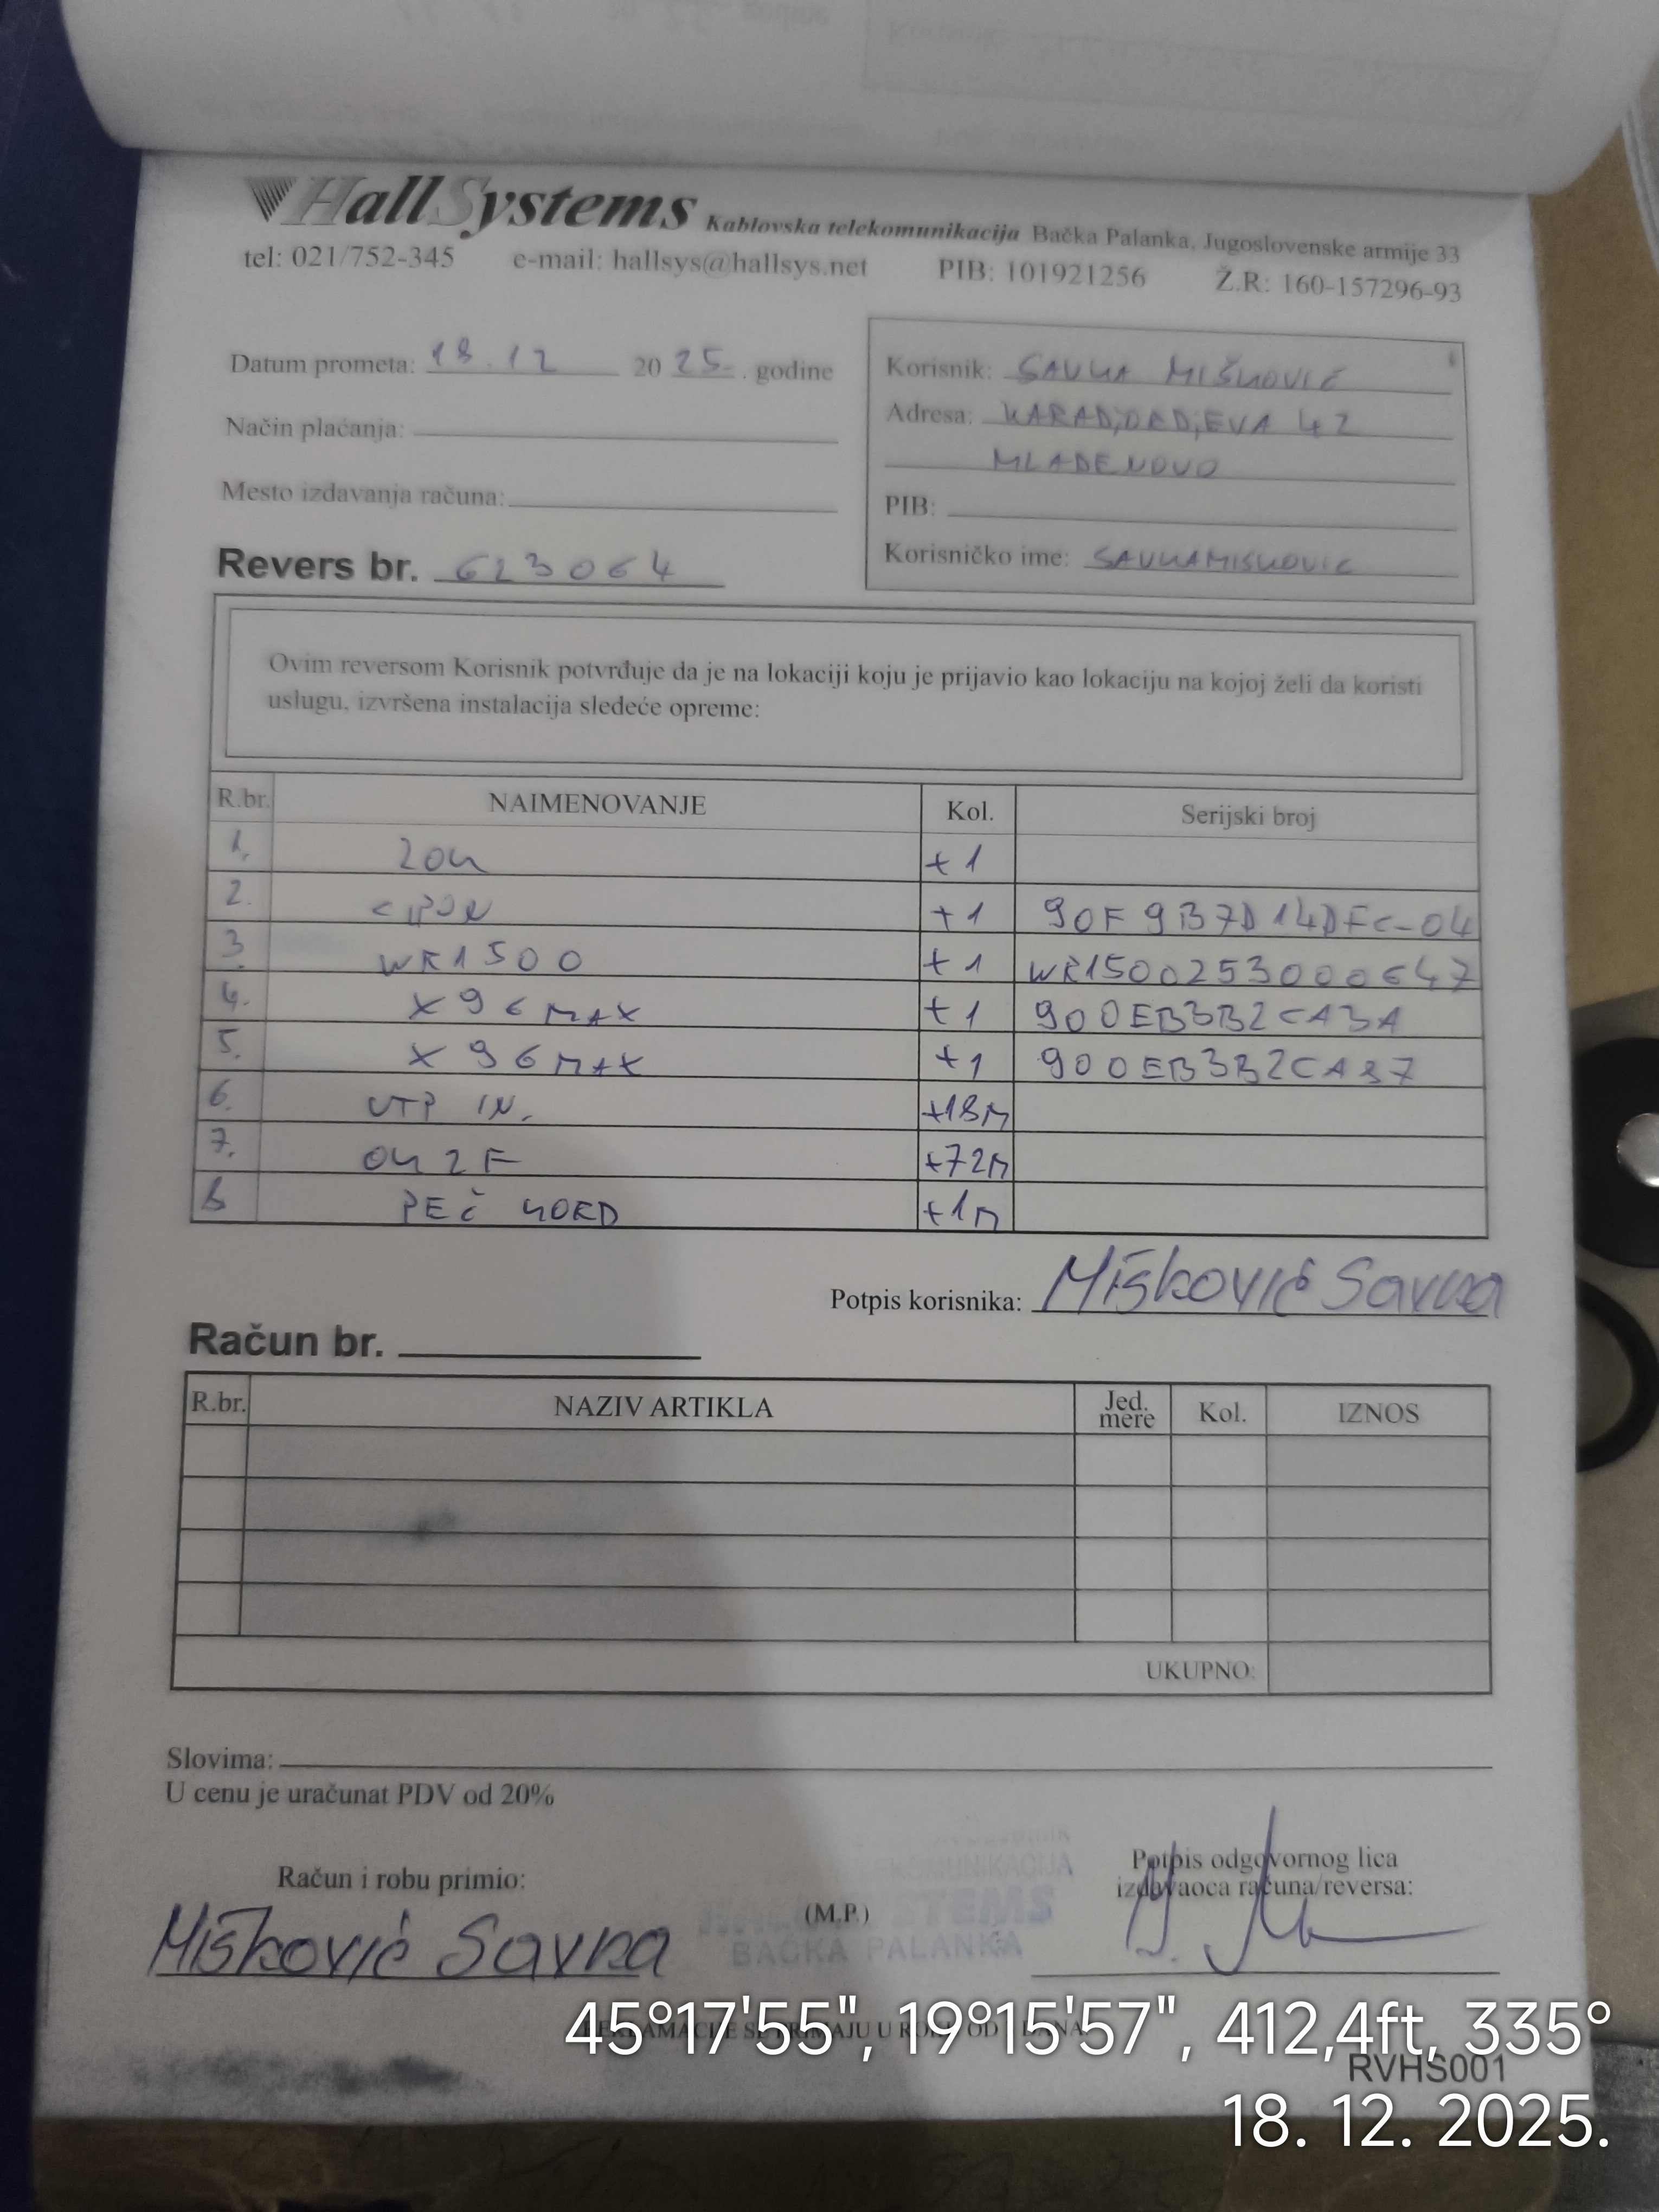 HallSystems Kablovska telekomunikacija Bačka Palanka, Jugoslovenske armije 33
tel: 021/752-345 e-mail: hallsys@hallsys.net PIB: 101921256 Ž.R: 160-157296-93
Datum prometa: 18.12 2025. godine
Način plaćanja:
Mesto izdavanja računa:
Revers br. 623064
Korisnik: SAVKA MIŠKOVIĆ
Adresa: KARADJORDJEVA 42
MLADENOVO
PIB:
Korisničko ime: SAVKAMISKOVIC
Ovim reversom Korisnik potvrđuje da je na lokaciji koju je prijavio kao lokaciju na kojoj želi da koristi
uslugu, izvršena instalacija sledeće opreme:
R.br. NAIMENOVANJE Kol. Serijski broj
1. ZOK +1
2. GPON +1 90F9B7D14DFC-04
3. WR1500 +1 WR1500253000647
4. X96MAX +1 900EB3B2CA3A
5. X96MAX +1 900EB3B2CA37
6. UTP IN. +18M
7. OK 2F +72M
8 PEČ KORD +1M
Potpis korisnika: Mišković Savka
Račun br.
R.br. NAZIV ARTIKLA Jed. mere Kol. IZNOS
UKUPNO:
Slovima:
U cenu je uračunat PDV od 20%
Račun i robu primio:
Mišković Savka
(M.P.)
TELEKOMUNIKACIJA
SYSTEMS
BAČKA PALANKA
Potpis odgovornog lica
izdavaoca računa/reversa:
45°17'55", 19°15'57", 412,4ft, 335°
RVHS001
18. 12. 2025.